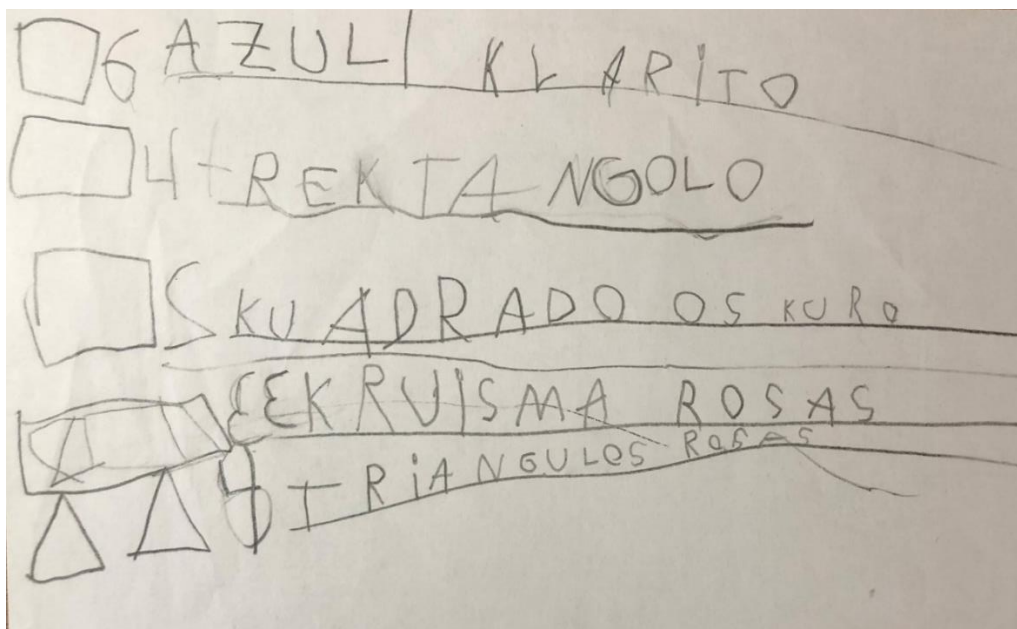 6 AZULI KLARITO
4 REKTANGOLO
S KUADRADO OSKURO
ROSAS
4 TRIANGULOS ROSAS